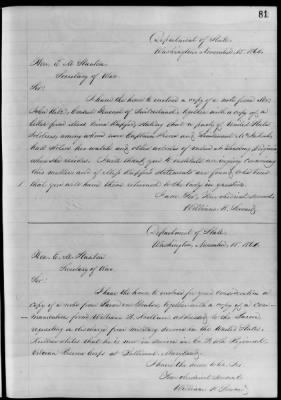 81
Department of State
Washington, November 15, 1864.
Hon. E. M. Stanton
Secretary of War.
Sir:
I have the honor to enclose a copy of a note from Mr.
John Hitz, Consul General of Switzerland, together with a copy of a
letter from Miss stating that a party of United States
Soldiers among whom were Captain and Lieutenant
had stolen her watch and other articles of value at Virginia
where she resides. I will thank you to institute an enquiry concerning
this matter and if Miss statements are found
that you will have them returned to the lady in question.
I am Sir, Your obedient servant,
William H. Seward
Department of State
Washington, November 15, 1864.
Hon. E. M. Stanton
Secretary of War.
Sir:
I have the honor to enclose for your consideration a
copy of a note from together with a copy of a com-
munication from William addressed to the
requesting a discharge from military service in the United States.
states that he is now in service in Co. Regiment
Veteran Reserve Corps at Maryland.
I have the honor to be Sir,
Your obedient servant
William H. Seward